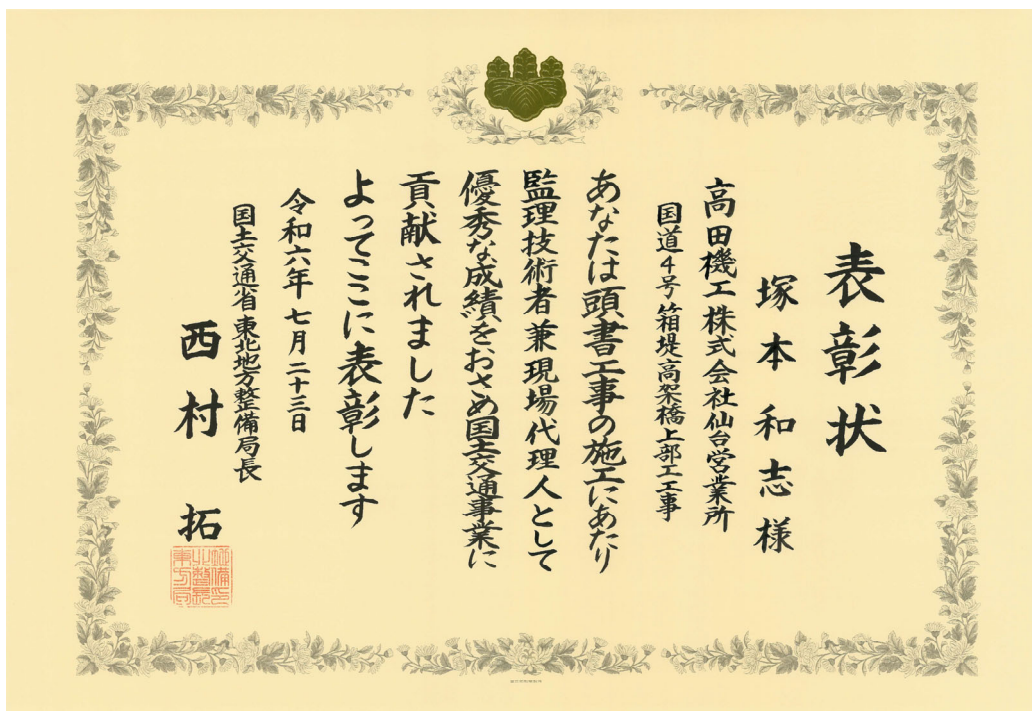 表彰状
塚本和志様
高田機工株式会社仙台営業所
国道4号箱堤高架橋上部工工事
あなたは頭書工事の施工にあたり
監理技術者兼現場代理人として
優秀な成績をおさめ国土交通事業に
貢献されました
よってここに表彰します
令和六年七月二十三日
国土交通省東北地方整備局長
西村拓